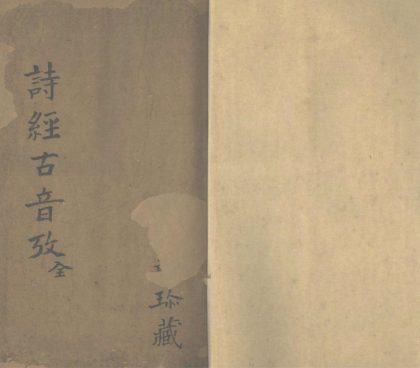 詩經古音攷全
珍藏